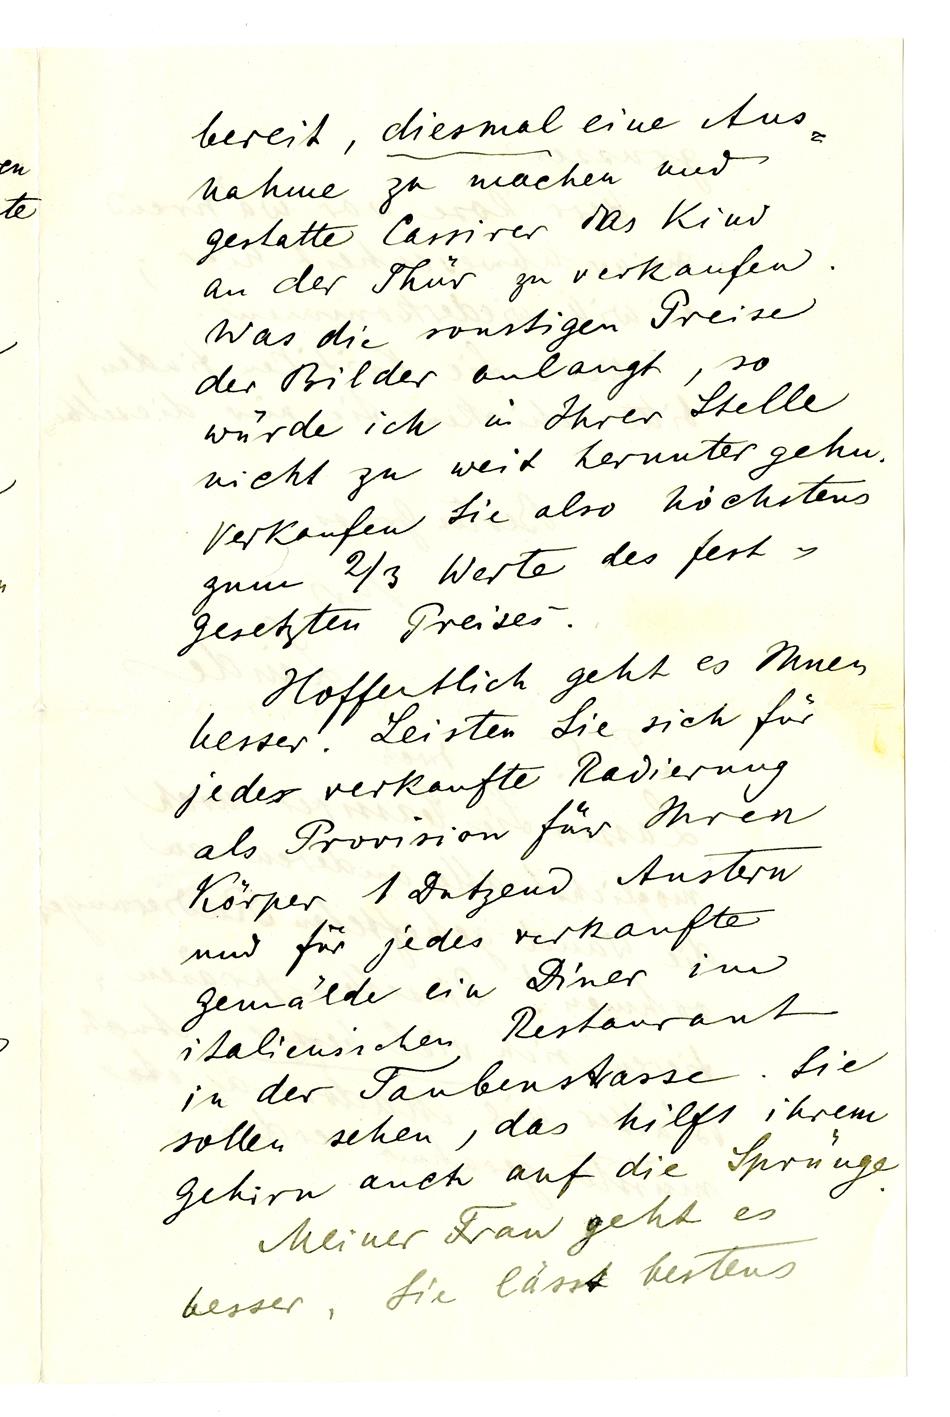 en
te
bereit, diesmal eine Aus=
nahme zu machen und
gestatte Cassirer das Kind
an der Thür zu verkaufen.
Was die sonstigen Preise
der Bilder anlangt, so
würde ich in Ihrer Stelle
nicht zu weit herunter gehn.
Verkaufen Sie also höchstens
zum 2/3 Werte des fest=
gesetzten Preises.
Hoffentlich geht es Ihnen
besser. Leisten Sie sich für
jedes verkaufte Radierung
als Provision für Ihren
Körper 1 Dutzend Austern
und für jedes verkaufte
Gemälde ein Diner im
italienischen Restaurant
in der Taubenstrasse. Sie
sollen sehen, das hilft ihrem
Gehirn auch auf die Sprünge.
Meiner Frau geht es
besser. Sie lässt bestens